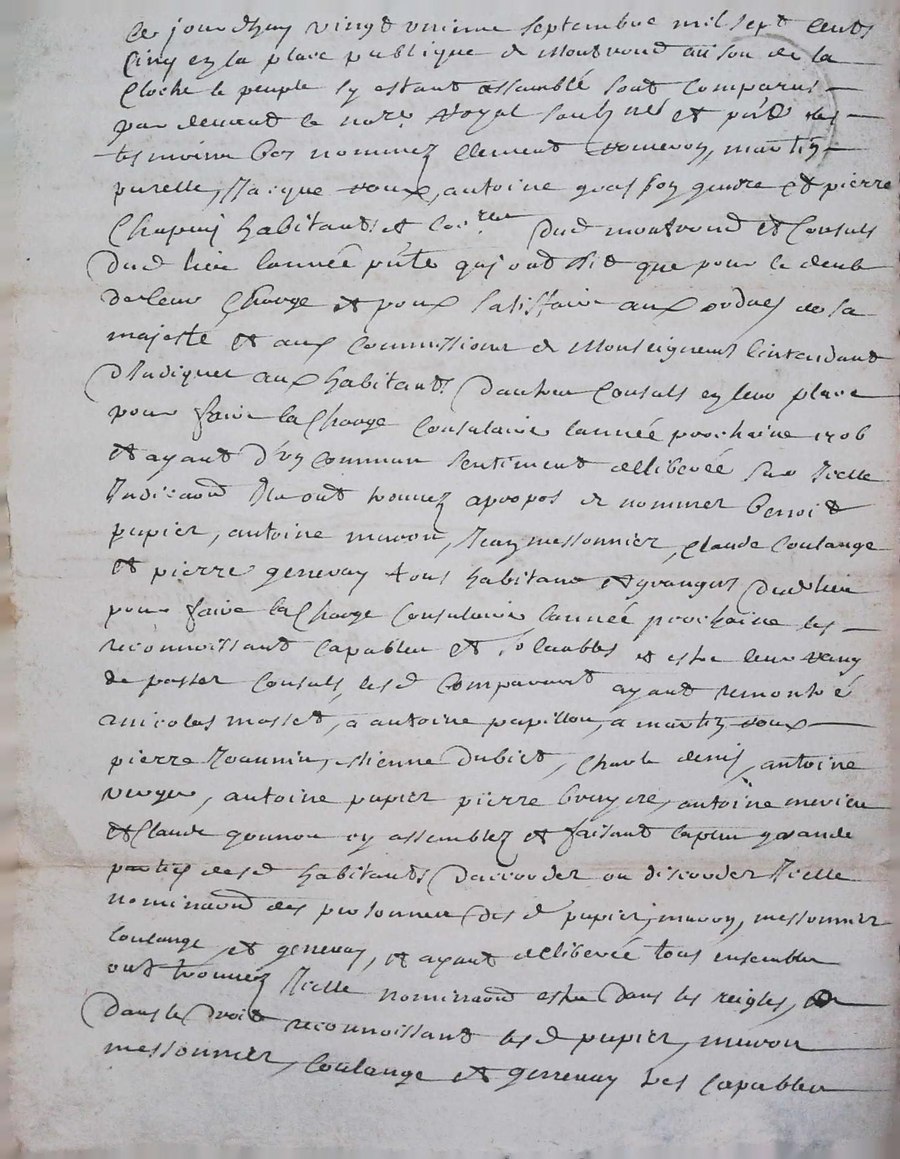 Ce jourdhuy vingt uniemme septembre mil sept cents
Cinq en la place publique de Montrond au son de la
Cloche le peuple sy estant assemblé sont comparus
par devant le nore Royal soubsné et pnt les
tesmoins bas nommez Clement Romeron, martin
purelle, Jacque Roux, antoine grosson gendre et pierre
Chapuis habitants et Dud montrond et Consuls
Dud lieu lannée pnte qui ont dit que pour le deub
de leur Charge et pour satisfaire aux ordres de sa
majesté et aux Commissions de Monseigneur lintendant
D'Indiquer aux habitants D'autre Consuls en leur place
pour faire la Charge Consulaire lannée prochaine 1706
et ayant d'un commun sentiment delliberée sur Icelle
Indicaon Ils ont trouvez apropos de nommer benoit
papier, antoine muron, Jean messonnier, Claude Coulange
et pierre genevay tous habitans et grangers Dud lieu
pour faire la Charge Consulaire lannée prochaine les
reconnoissant Capables et solvables et estre leur rang
de passer Consuls, lesd Comparants ayant remontré
a nicolas mosset, a antoine papillon, a martin Roux
pierre Jounnin, estienne Dubiet, Charle denis, antoine
verger, antoine papier pierre bruyere, antoine merieu
et Claude gounon cy assemblez et faisant la plus grande
partie desd habitants D'accorder ou discorder Icelle
nominaon des personnes desd papier, muron, messonnier
Coulange, et genevay, et ayant delliberée tous ensemble
ont trouvez Icelle nominaon estre Dans les reigles, et
Dans le Droit reconnoissant lesd papier, muron
messonnier, Coulange et genevay les Capables